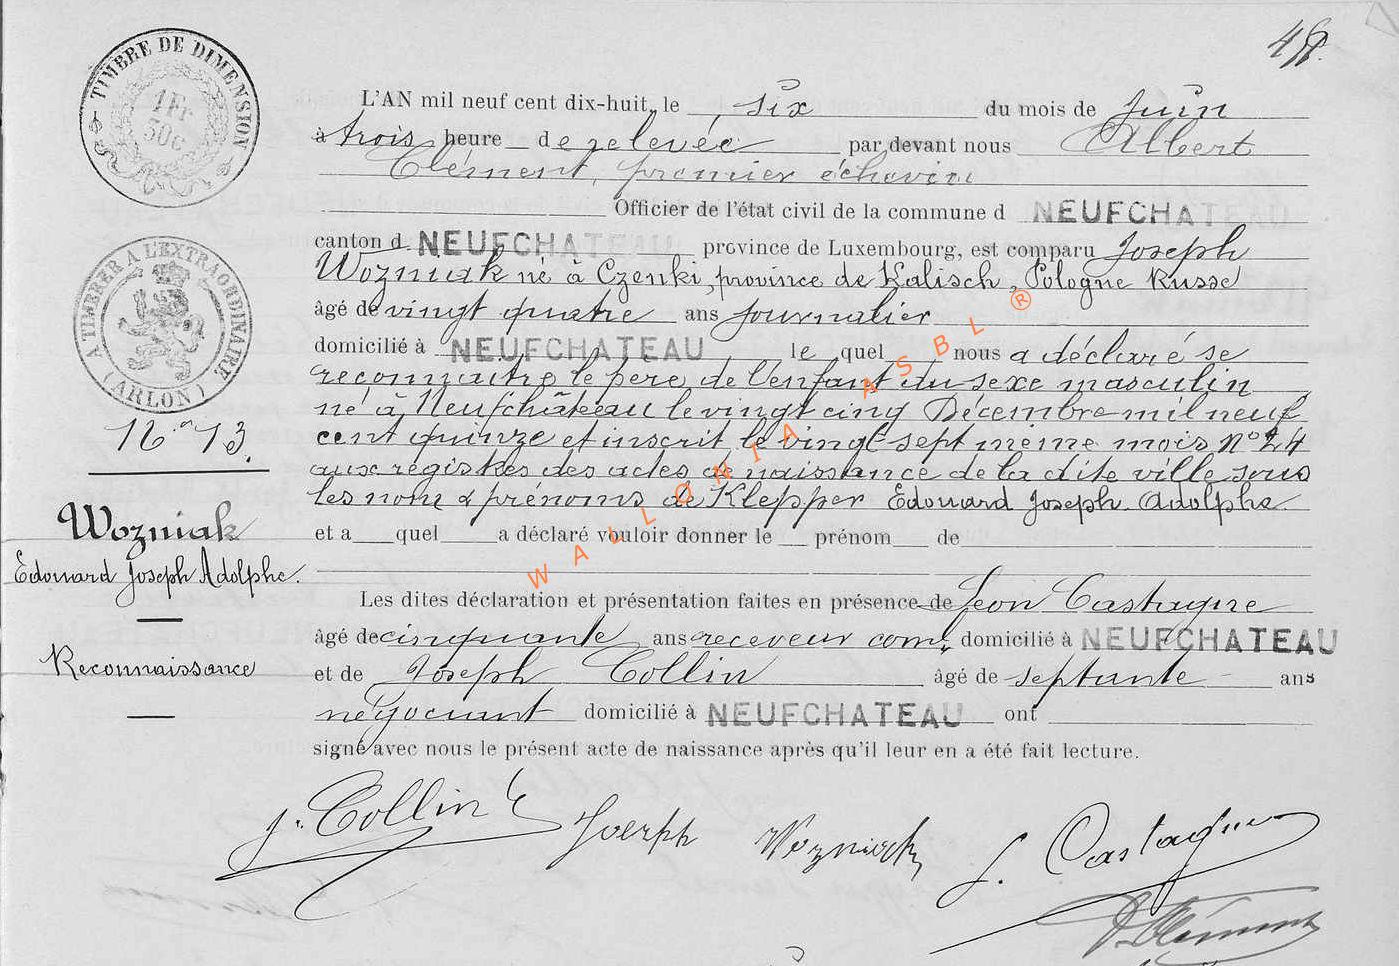 48.
TIMBRE DE DIMENSION
1Fr
50c
L'AN mil neuf cent dix-huit, le six du mois de juin
à trois heure de relevée par devant nous Albert
Clément, premier échevin
Officier de l'état civil de la commune d NEUFCHATEAU
canton d NEUFCHATEAU province de Luxembourg, est comparu Joseph
A TIMBRER A L'EXTRAORDINAIRE
(ARLON)
Wozniak né à Czenki, province de Kalisch, Pologne Russe
âgé de vingt quatre ans journalier
domicilié à NEUFCHATEAU le quel nous a déclaré se
reconnaitre le père de l'enfant du sexe masculin
né à Neufchâteau le vingt cinq Décembre mil neuf
N° 13.
cent quinze et inscrit le vingt sept même mois N° 24
aux registres des actes de naissance de la dite ville sous
les nom & prénoms de Klepper Edouard Joseph Adolphe.
Wozniak
Edouard Joseph Adolphe.
et a quel a déclaré vouloir donner le prénom de
Les dites déclaration et présentation faites en présence de Jean Castagne
âgé de cinquante ans receveur comal domicilié à NEUFCHATEAU
Reconnaissance
et de Joseph Collin âgé de septante ans
négociant domicilié à NEUFCHATEAU ont
signé avec nous le présent acte de naissance après qu'il leur en a été fait lecture.
WALLONIA ASBL ®
J. Collin Joseph Wozniack J. Castagne
A Clément